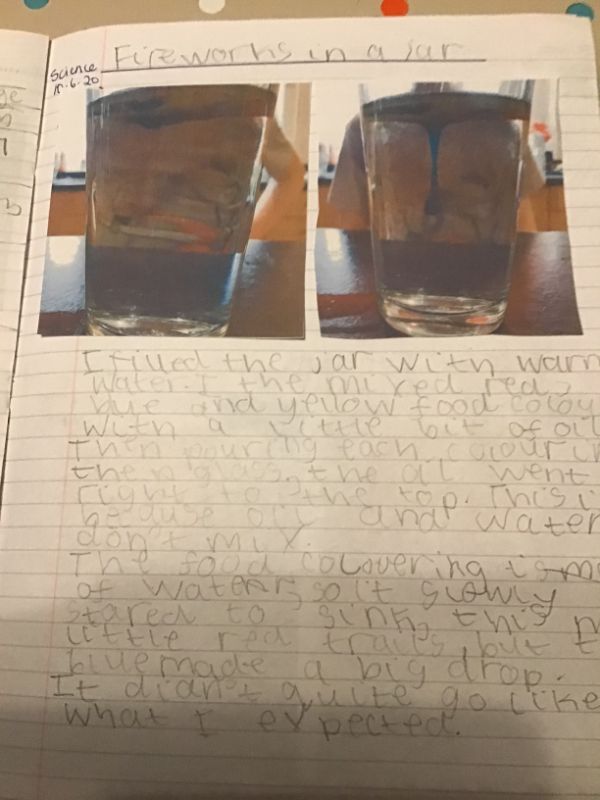 Fireworks in a jar
Science
10.6.20
I filled the jar with warm
water. I the mixed red,
blue and yellow food colou
with a little bit of oil
Then pouring each colourin
then glass, the oil went
right to the top. This i
because oil and water
don't mix.
The food colouering is m
of water, so it slowly
stared to sink, this m
little red trails, but t
blue made a big drop.
It didn't quite go like
what I expected.